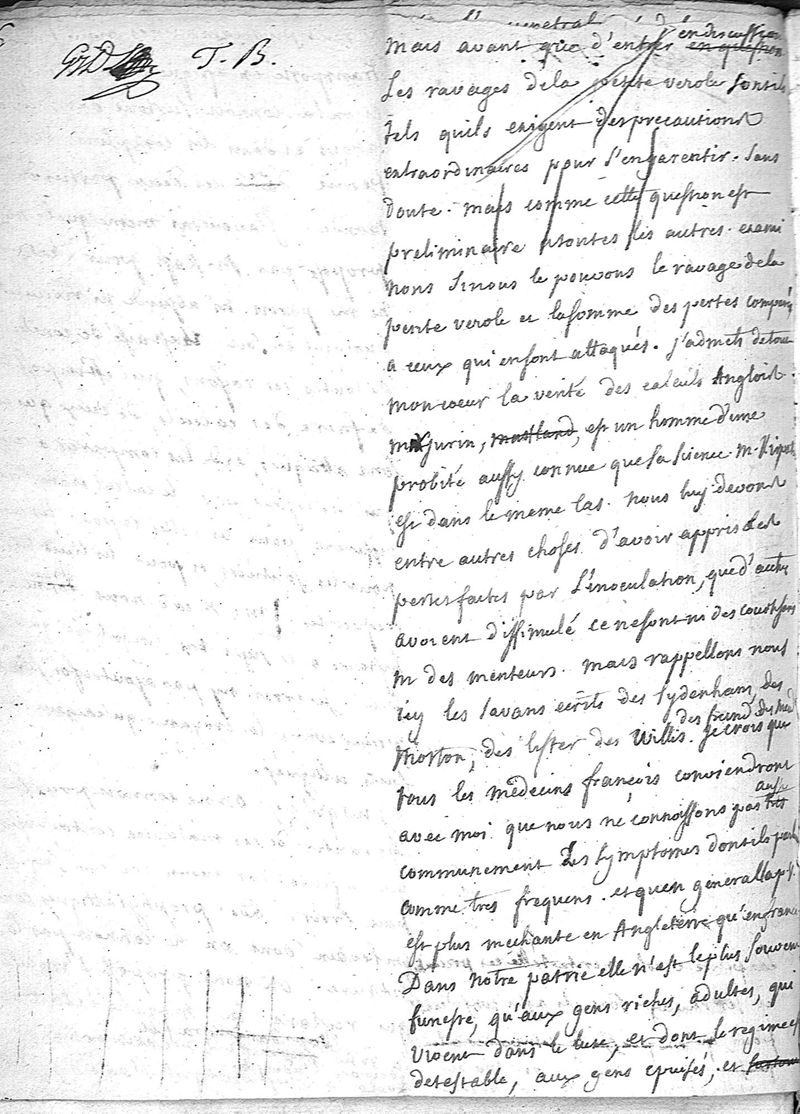 T. B.
en discussion
mais avant que d'entrer en question
Les ravages dela petite verole sontils
tels quils exigent des precautions
extraordinaires pour s'en garentir. sans
doute. mais comme cette question est
preliminaire atoutes les autres. exami
nons sinous le pouvons le ravage dela
petite verole et lasomme des pertes comparée
a ceux qui ensont attaqués. j'admets detout
moncoeur la verité des calculs Anglois.
mr jurin, maitland, est un homme d'une
probité aussy connue que sa science. m. Kirpat
est dans le meme cas. nous luy devons
entre autres choses d'avoir appris les
pertes faites par L'inoculation, que d'autres
avoient dissimulé ce nesont ni des courtisans
ni des menteurs. mais rappellons nous
icy les savans ecrits des sydenham, des
des freind des mead
Morton, des lister des Willis. je crois que
tous les medecins françois conviendront
aussi
avec moi que nous ne connoissons pas
communement les symptomes dontils parlent
comme tres frequens. et quen general la p.v.
est plus mechante en Angleterre qu'en france
Dans notre patrie elle n'est le plus souvent
funeste, qu'aux gens riches, adultes, qui
vivent dans le luxe, et dont le regime est
detestable, aux gens epuisés, et surtout